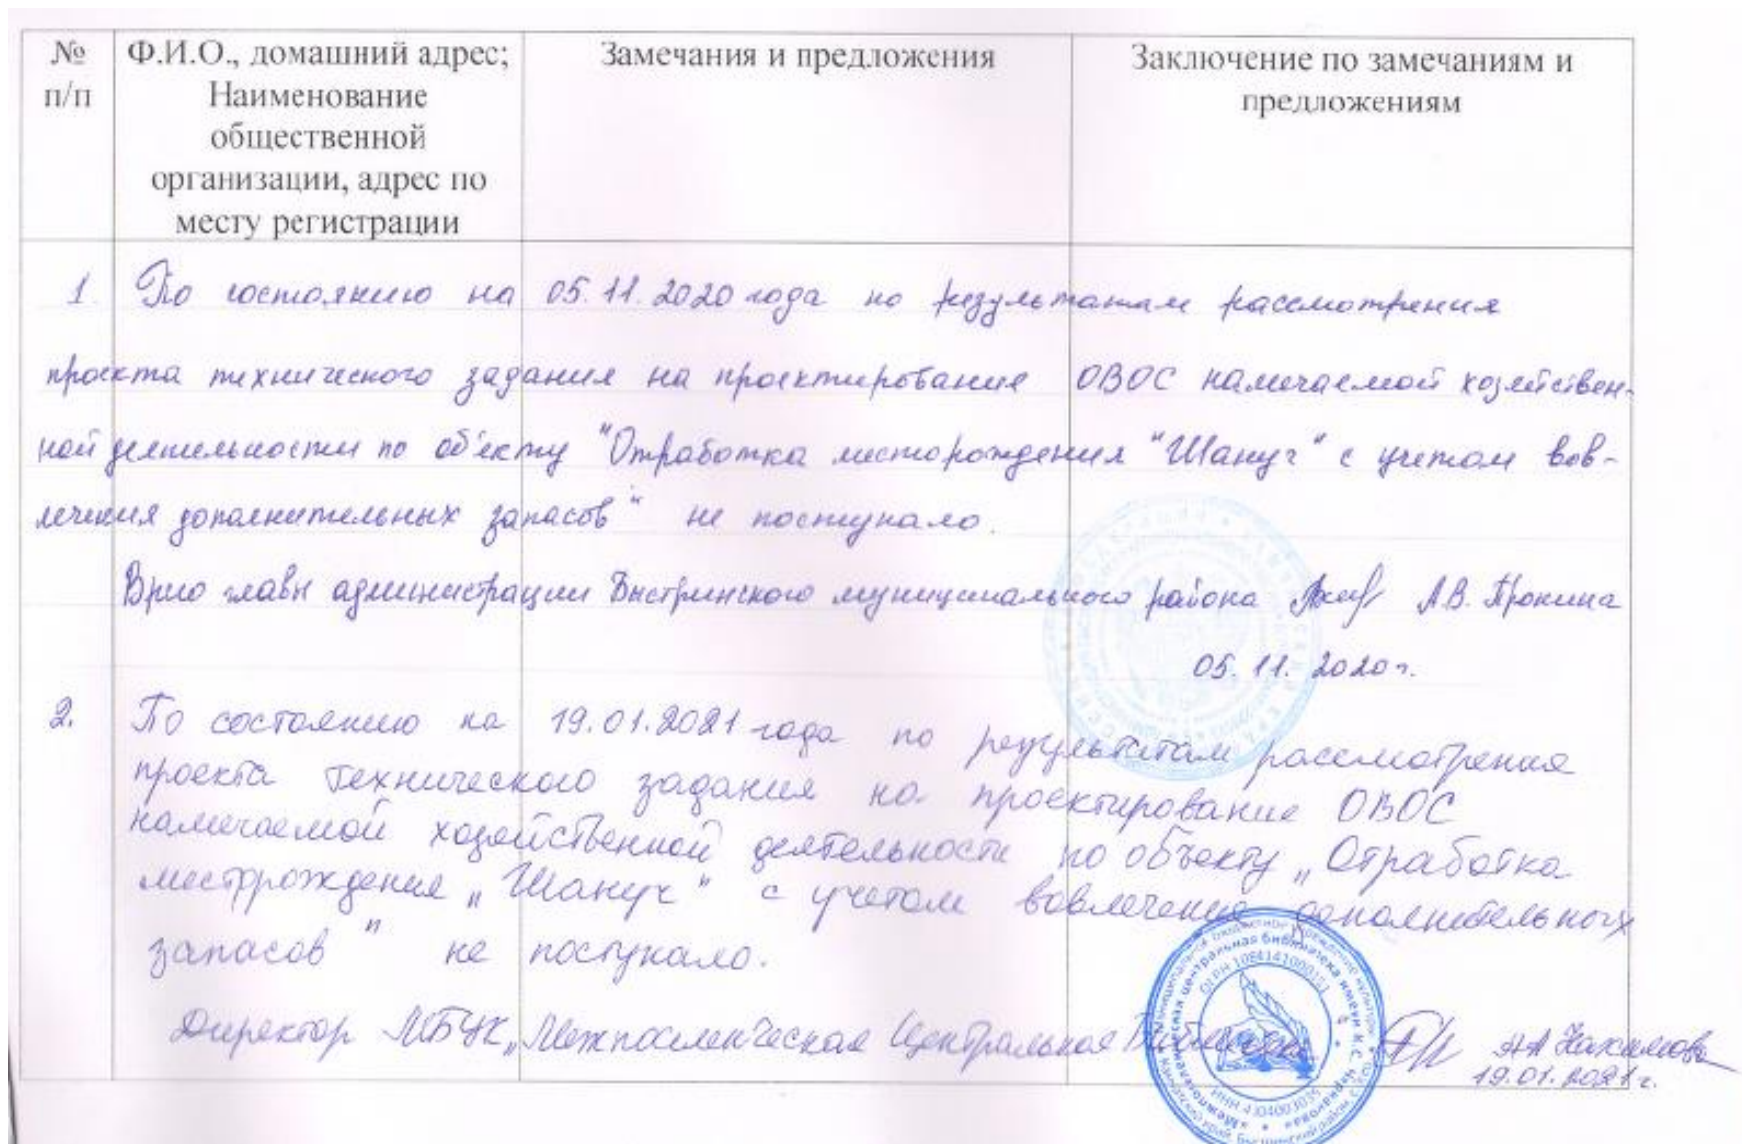 № п/п
Ф.И.О., домашний адрес;
Наименование
общественной
организации, адрес по
месту регистрации
Замечания и предложения
Заключение по замечаниям и
предложениям
1. По состоянию на 05.11.2020 года по результатам рассмотрения
проекта технического задания на проектирование ОВОС намечаемой хозяйствен-
ной деятельности по объекту "Отработка месторождения "Шануч" с учетом вов-
лечения дополнительных запасов" не поступало.
Врио главы администрации Быстринского муниципального района А.В. Пронина
05.11.2020г.
2. По состоянию на 19.01.2021 года по результатам рассмотрения
проекта технического задания на проектирование ОВОС
намечаемой хозяйственной деятельности по объекту „Отработка
месторождения „Шануч" с учетом вовлечения дополнительных
запасов" не поступало.
Директор МБУК „Межпоселенческая Центральная Библиотека
19.01.2021г.